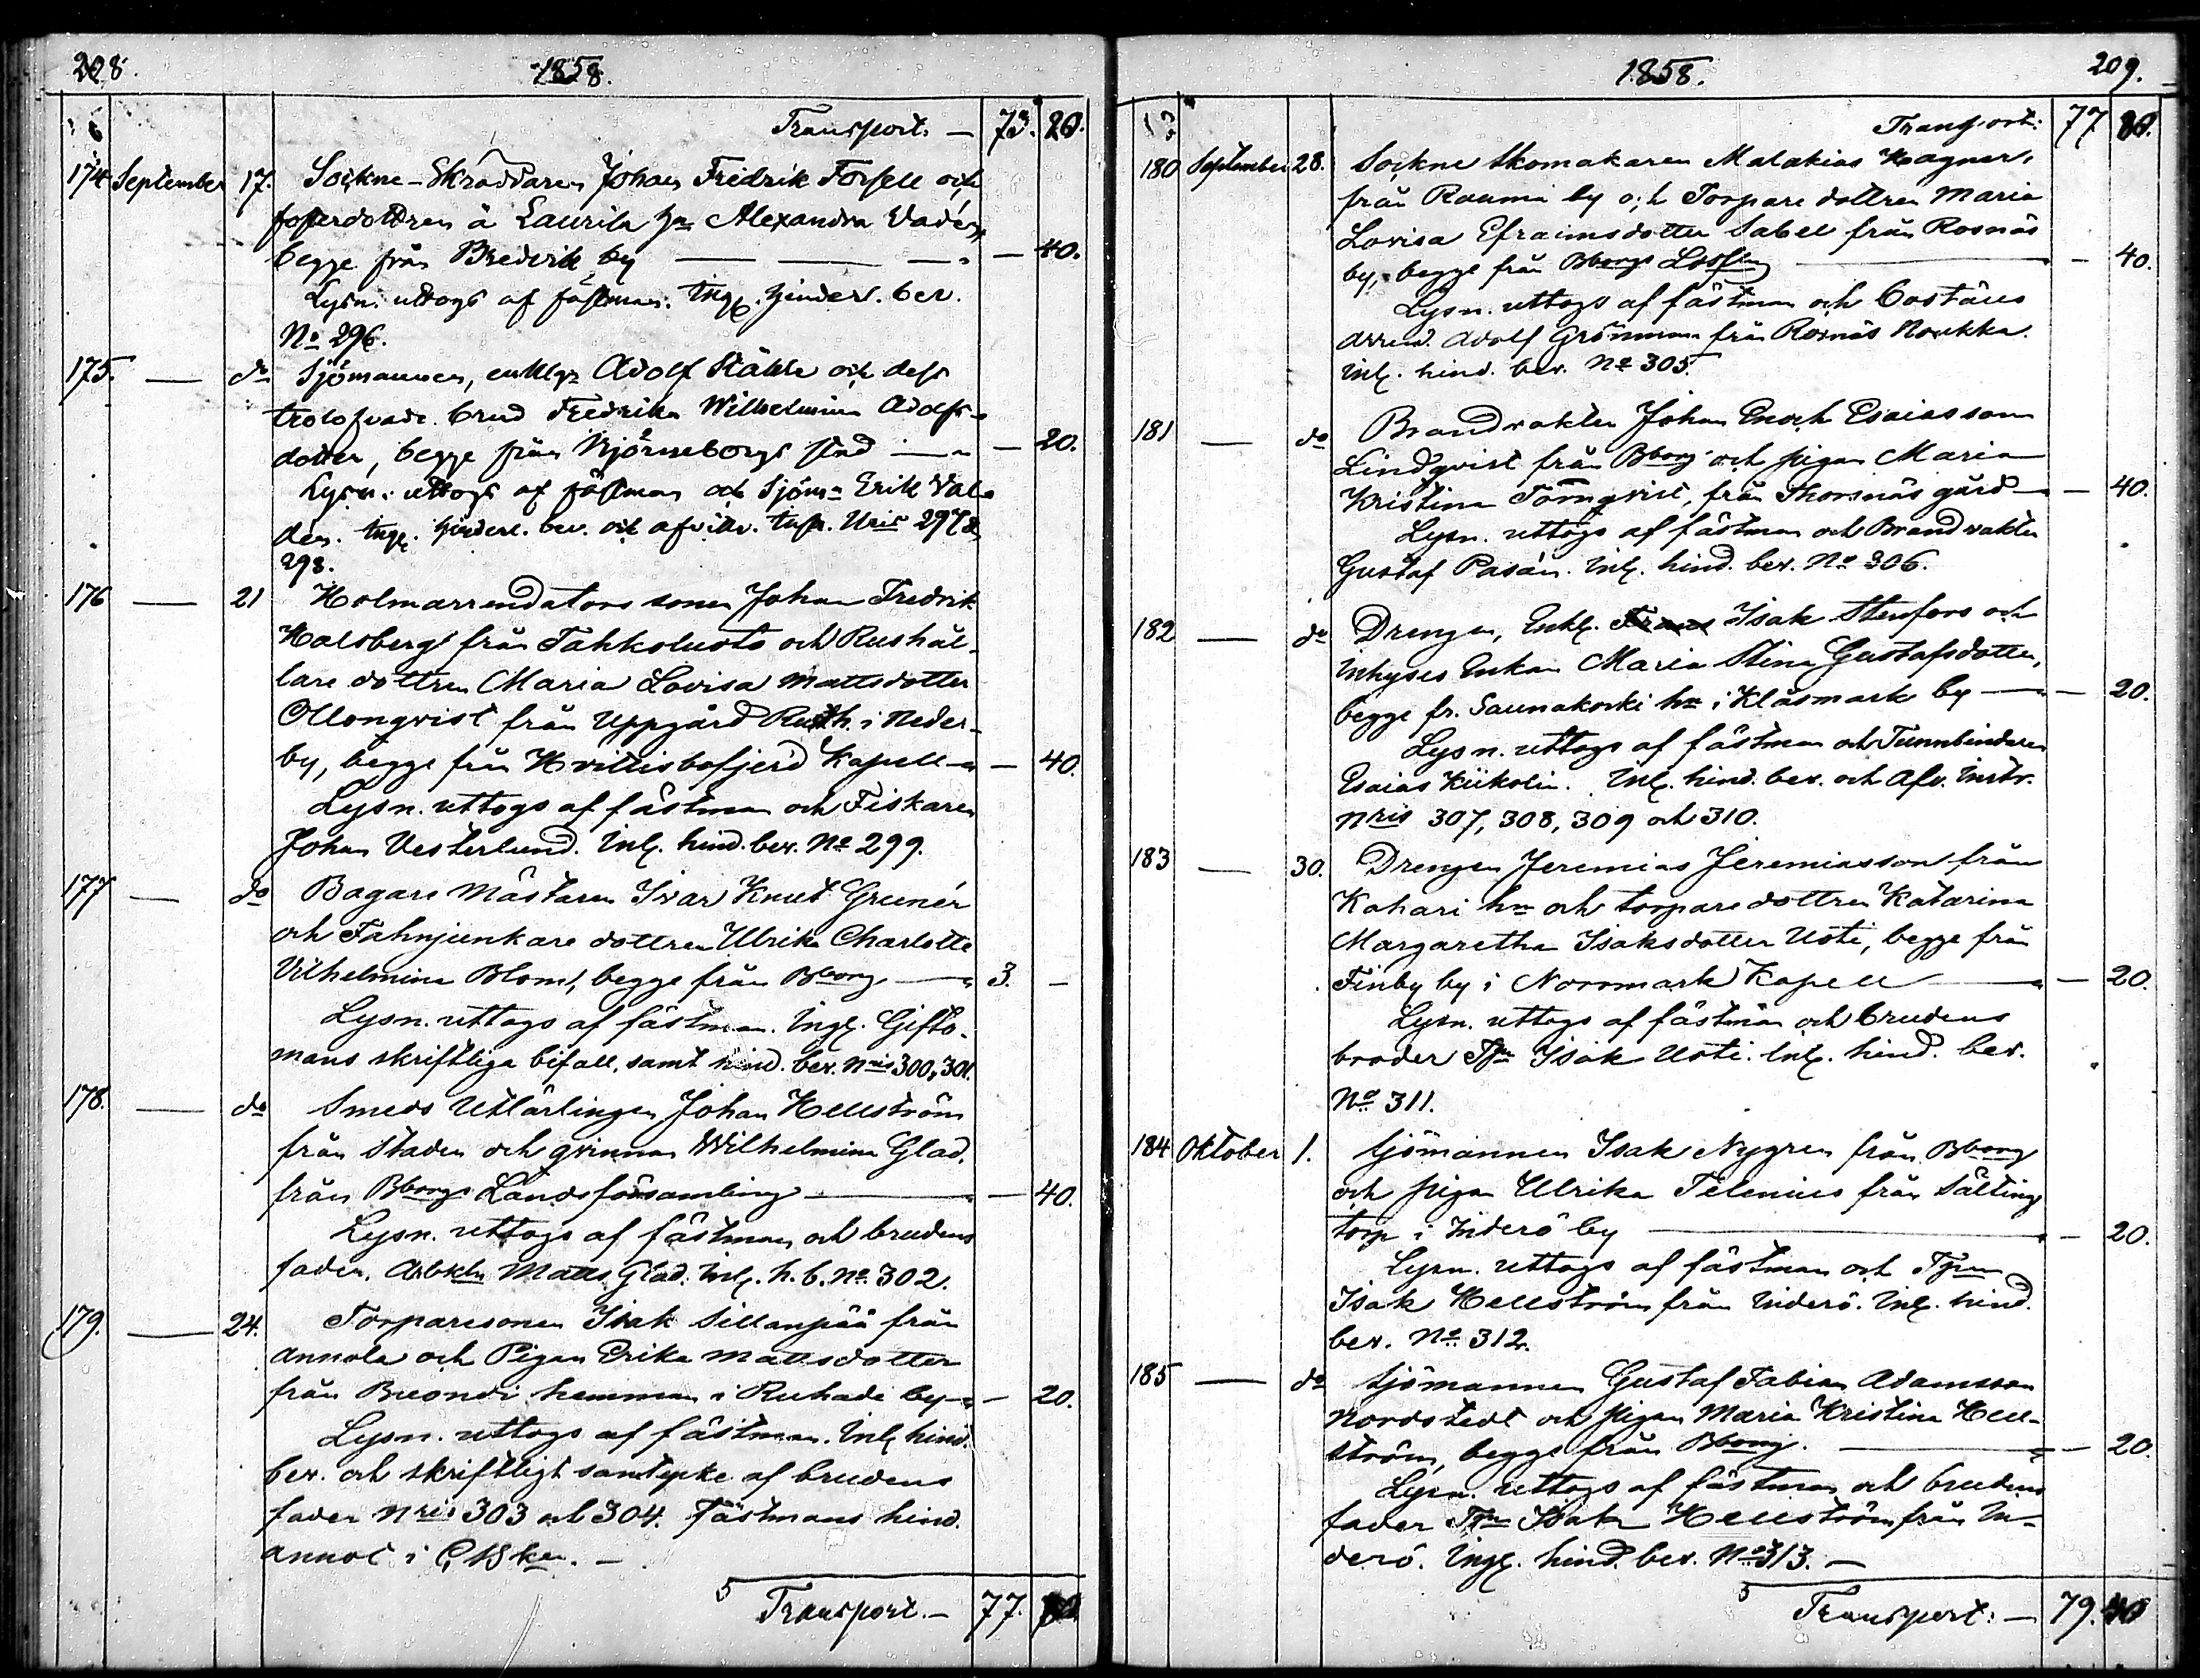 208.
1858.
Transport. — 73. 20.
174 September 17. Sockne-Skräddaren Johan Fredrik Forsell och
fosterdottren å Laurila hn Alexandra Vadén,
begge från Bredvik by — 40.
Lysn. uttogs af fästman. Ingl. hinder. bev.
No 296.
175. — do Sjömannen, enkl. Adolf Stähle och dess
trolofvade brud Fredrika Wilhelmina Adolfs-
dotter, begge från Björneborgs stad — 20.
Lysn. uttogs af fästman och Sjöm. Erik Val-
den. Ingl. hinderl. bev. och afvittr. instr. Nris 297 &
298.
176 — 21 Holmarrendators sonen Johan Fredrik
Holsberg från Tahkoluoto och Rushål-
lare dottren Maria Lovisa Mattsdotter
Ollonqvist från Uppgård Rusth. i Neder-
by, begge från Hvittisbofjerd Kapell — 40.
Lysn. uttogs af fästman och Fiskaren
Johan Vesterlund. Inl. hind. bev. No 299.
177 — do Bagare Mästaren Ivar Knut Grunér
och Fahnjunkare dottren Ulrika Charlotte
Vilhelmina Blom, begge från Bborg — 3. —
Lysn. uttogs af fästman. Ingl. Gifto-
mans skriftliga bifall, samt hind. bev. Nris 300, 301.
178. — do Smeds Utlärlingen Johan Hellström
från staden och qvinnan Wilhelmina Glad,
från Bborgs Landsförsamling — 40.
Lysn. uttogs af fästman och brudens
fader, Arbkln Matts Glad. Inl. h. b. No 302.
179. — 24. Torparesonen Isak Sillanpää från
Annola och Pigan Erika Mattsdotter
från Buondi hemman i Ruhade by — 20.
Lysn. uttogs af fästman. Inl. hind.
bev. och skriftligt samtycke af brudens
fader Nris 303 och 304. Fästmans hind.
annot i
Transport. — 77.
1858.
209.
Transport: 77
180 September 28. Sockne Skomakaren Malakias Wagner,
från Raumi by och Torpare dottren Maria
Lovisa Efraimsdotter Sabell från Rosnäs
by, begge från Bborgs Ldsfsg — 40.
Lysn. uttogs af fästman och Boställs
arrend. Adolf Grönman från Rosnäs Noukka.
Inl. hind. bev. No 305.
181 — do Brandvakten Johan Enoch Esaiasson
Lindqvist från Bborg och pigan Maria
Kristina Törnqvist, från Thorsnäs gård — 40.
Lysn. uttogs af fästman och Brandvakten
Gustaf Pasán. Inl. hind. bev. No 306.
182 — do Drengen, Enkl. Frans Isak Stenfors och
Inhyses Enkan Maria Stina Gustafsdotter,
begge fr. Saunakoski hn i Klåsmark by — 20.
Lysn. uttogs af fästman och Tunnbindaren
Esaias Kiikolin. Inl. hind. bev. och Afv. Instr.
Nris 307, 308, 309 och 310.
183 — 30. Drengen Jeremias Jeremiasson från
Kahari hn och torpare dottren Katarina
Margaretha Isaksdotter Uoti, begge från
Finby by i Norrmark Kapell — 20.
Lysn. uttogs af fästman och brudens
broder Tpn Isak Uoti. Inl. hind. bev.
No 311.
184 Oktober 1. Sjömannen Isak Nygren från Bborg
och pigan Ulrika Telenius från Sälting
torp i Inderö by — 20.
Lysn. uttogs af fästman och Tprn
Isak Hellström från Inderö. Inl. hind.
bev. No 312.
185 — do Sjömannen Gustaf Fabian Adamsson
Nordstedt och pigan Maria Kristina Hell-
ström, begge från Bborg. — 20.
Lysn. uttogs af fästman och brudens
fader Tpn Isak Hellström från In-
derö. Ingl. hind. bev. No 313. —
Transport: — 79. 40